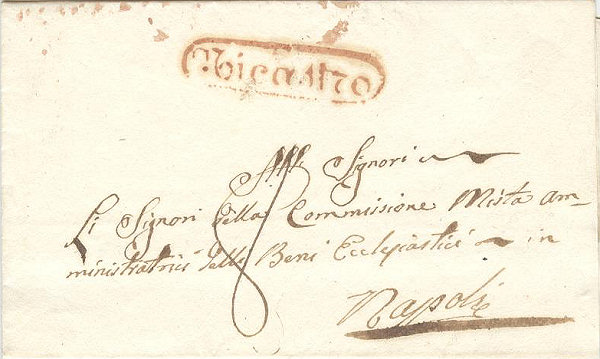 Nicastro
Signori
Li Signori della Commissione Mista am=
ministratrici delli Beni Ecclesiastici in
Napoli
8